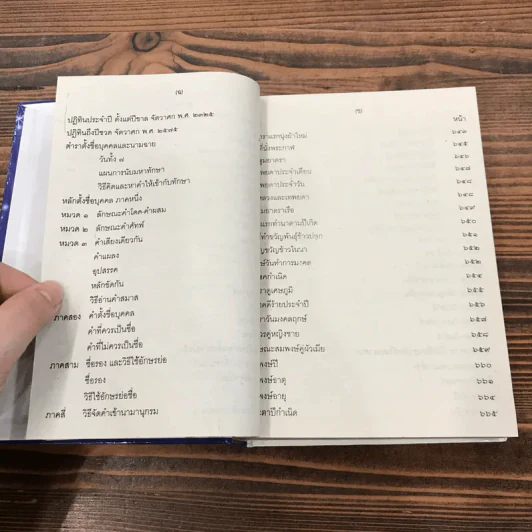 (๒)
ปฏิทินประจำปี ตั้งแต่ปีขาล จัตวาศก พ.ศ. ๒๓๒๕
ปฏิทินถึงปีขวด จัตวาศก พ.ศ. ๒๕๗๕
ตำราตั้งชื่อบุคคลและนามฉาย
วันทั้ง ๗
แผนการนับมหาทักษา
วิธีคิดและหาคำให้เข้ากับทักษา
หลักตั้งชื่อบุคคล ภาคหนึ่ง
หมวด ๑ ลักษณะคำโดด-คำผสม
หมวด ๒ ลักษณะคำศัพท์
หมวด ๓ คำเสียงเดียวกัน
คำแผลง
อุปสรรค
หลักชัดกัน
วิธีอ่านคำสมาส
ภาคสอง คำตั้งชื่อบุคคล
คำที่ควรเป็นชื่อ
คำที่ไม่ควรเป็นชื่อ
ภาคสาม ชื่อรอง และวิธีใช้อักษรย่อ
ชื่อรอง
วิธีใช้อักษรย่อชื่อ
ภาคสี่ วิธีจัดคำเข้านามานุกรม
หน้า
ราแรกนุ่งผ้าใหม่
ที่นั่งพระกาฬ ๖๔๕
ยาตรา ๖๔๖
ประจำเดือน ๖๔๗
ประจำวัน ๖๔๘
และเทพยดา ๖๔๘
ยาตราเรือ ๖๔๙
แรกทำนาตามปีเกิด ๖๕๐
ทำขวัญพันธุ์ข้าวปลูก ๖๕๑
ขวัญข้าวในนา ๖๕๒
วันทำการมงคล ๖๕๓
กำเนิด ๖๕๔
ดูเศษภูมิ ๖๕๕
ดีร้ายประจำปี ๖๕๖
วันมงคลฤกษ์ ๖๕๗
คู่หญิงชาย ๖๕๘
สมพงษ์คู่ผัวเมีย ๖๕๙
พงษ์ปี ๖๖๐
พงษ์ธาตุ ๖๖๑
พงษ์อายุ ๖๖๔
ปีกำเนิด ๖๖๕